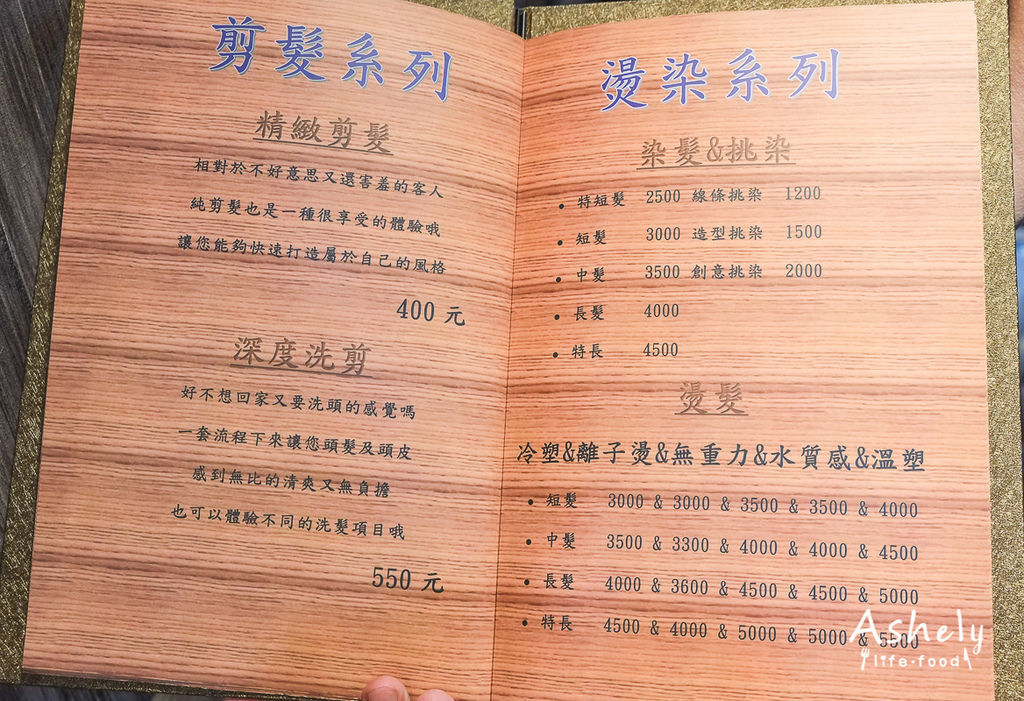 剪髮系列
精緻剪髮
相對於不好意思又還害羞的客人
純剪髮也是一種很享受的體驗哦
讓您能夠快速打造屬於自己的風格
400 元
深度洗剪
好不想回家又要洗頭的感覺嗎
一套流程下來讓您頭髮及頭皮
感到無比的清爽又無負擔
也可以體驗不同的洗髮項目哦
550 元
燙染系列
染髮&挑染
• 特短髮 2500 線條挑染 1200
• 短髮 3000 造型挑染 1500
• 中髮 3500 創意挑染 2000
• 長髮 4000
• 特長 4500
燙髮
冷塑&離子燙&無重力&水質感&溫塑
• 短髮 3000 & 3000 & 3500 & 3500 & 4000
• 中髮 3500 & 3300 & 4000 & 4000 & 4500
• 長髮 4000 & 3600 & 4500 & 4500 & 5000
• 特長 4500 & 4000 & 5000 & 5000 & 5500
Ashely
life·food